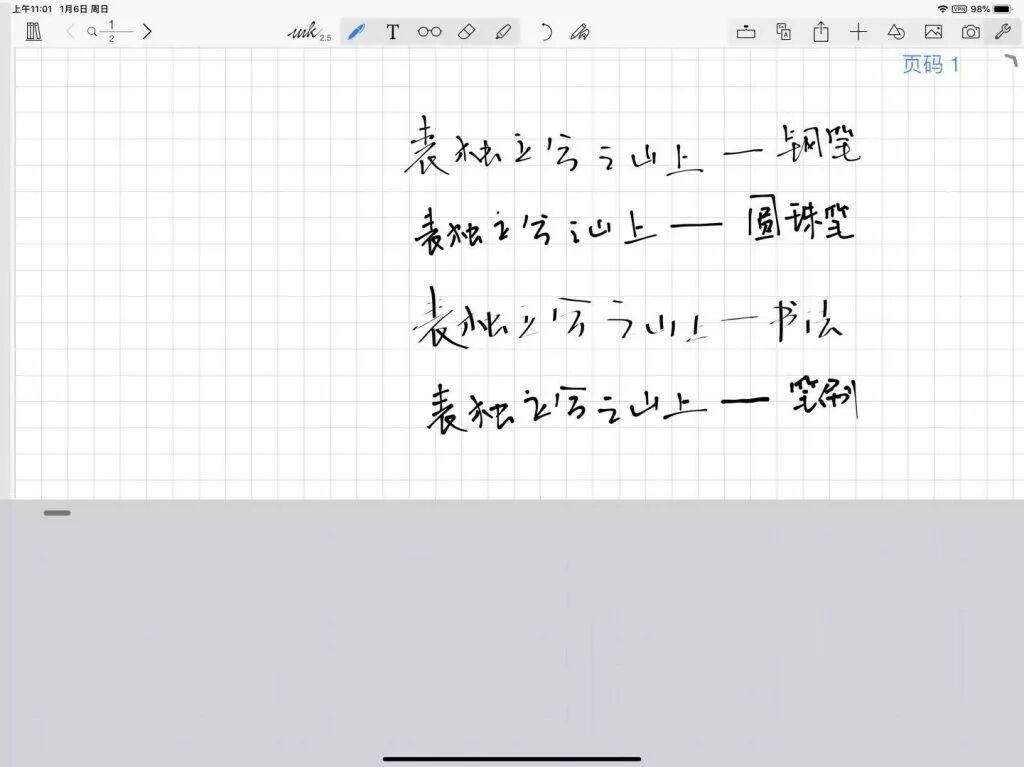 上午11:01 1月6日 周日 VPN 98%
1
2
ink 2.5 T
页码 1
表独立兮之山上 — 钢笔
表独立兮之山上 — 圆珠笔
表独立兮之山上 — 书法
表独立兮之山上 — 笔刷